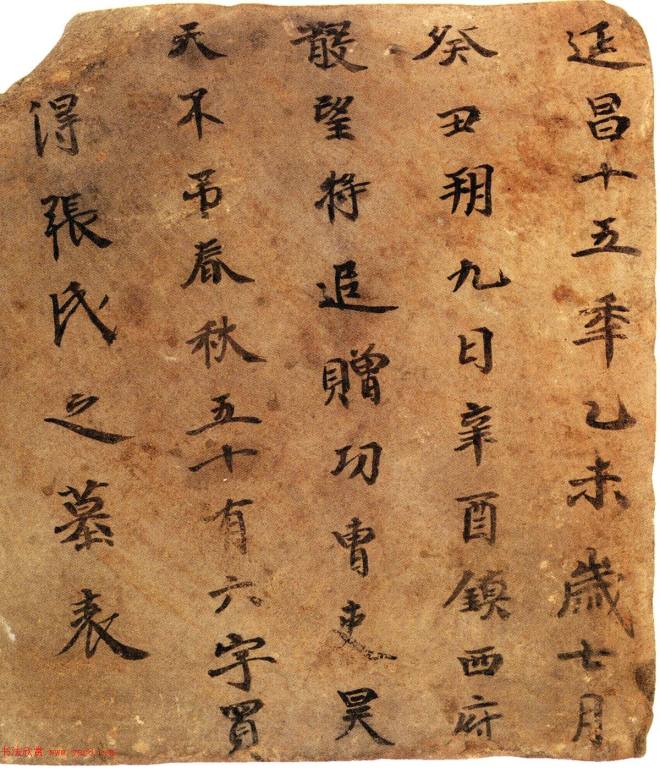 延昌十五秊乙未歲七月
癸丑朔九日辛酉鎮西府
散望将追贈功曹吏昊
天不吊春秋五十有六字買
得張氏之墓表
书法欣赏